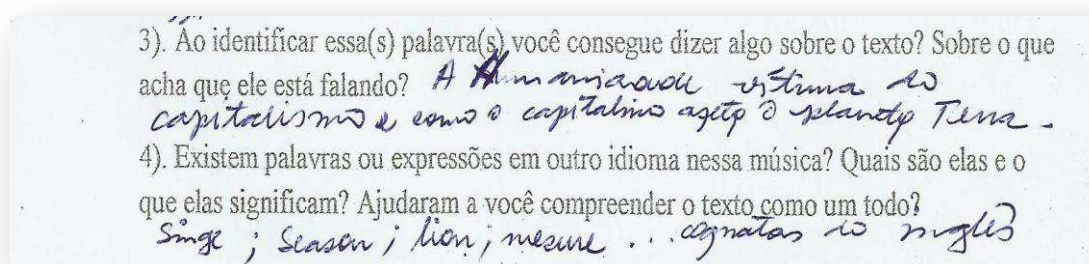 3). Ao identificar essa(s) palavra(s) você consegue dizer algo sobre o texto? Sobre o que
acha que ele está falando? A Humanidade vítima do
capitalismo e como o capitalismo afeta o planeta Terra.
4). Existem palavras ou expressões em outro idioma nessa música? Quais são elas e o
que elas significam? Ajudaram a você compreender o texto como um todo?
Singe ; Season ; lion ; mesure ... cognatas do inglês